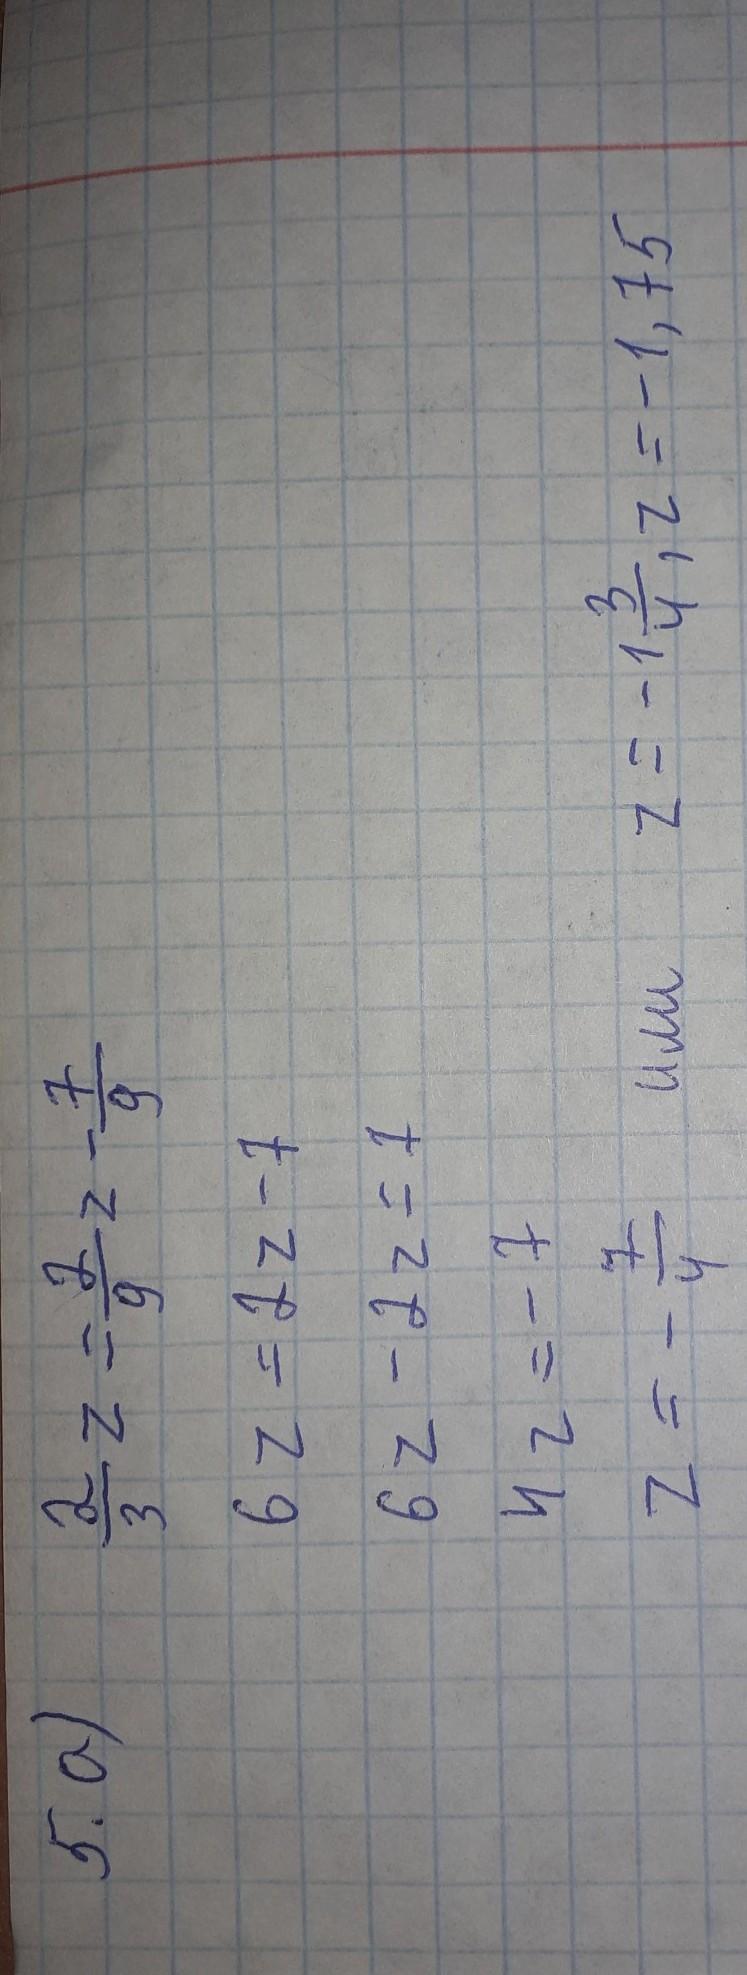 5. а) 2/3 z = 2/9 z - 7/9
6z = 2z - 7
6z - 2z = 7
4z = -7
z = - 7/4 или z = -1 3/4, z = -1,75